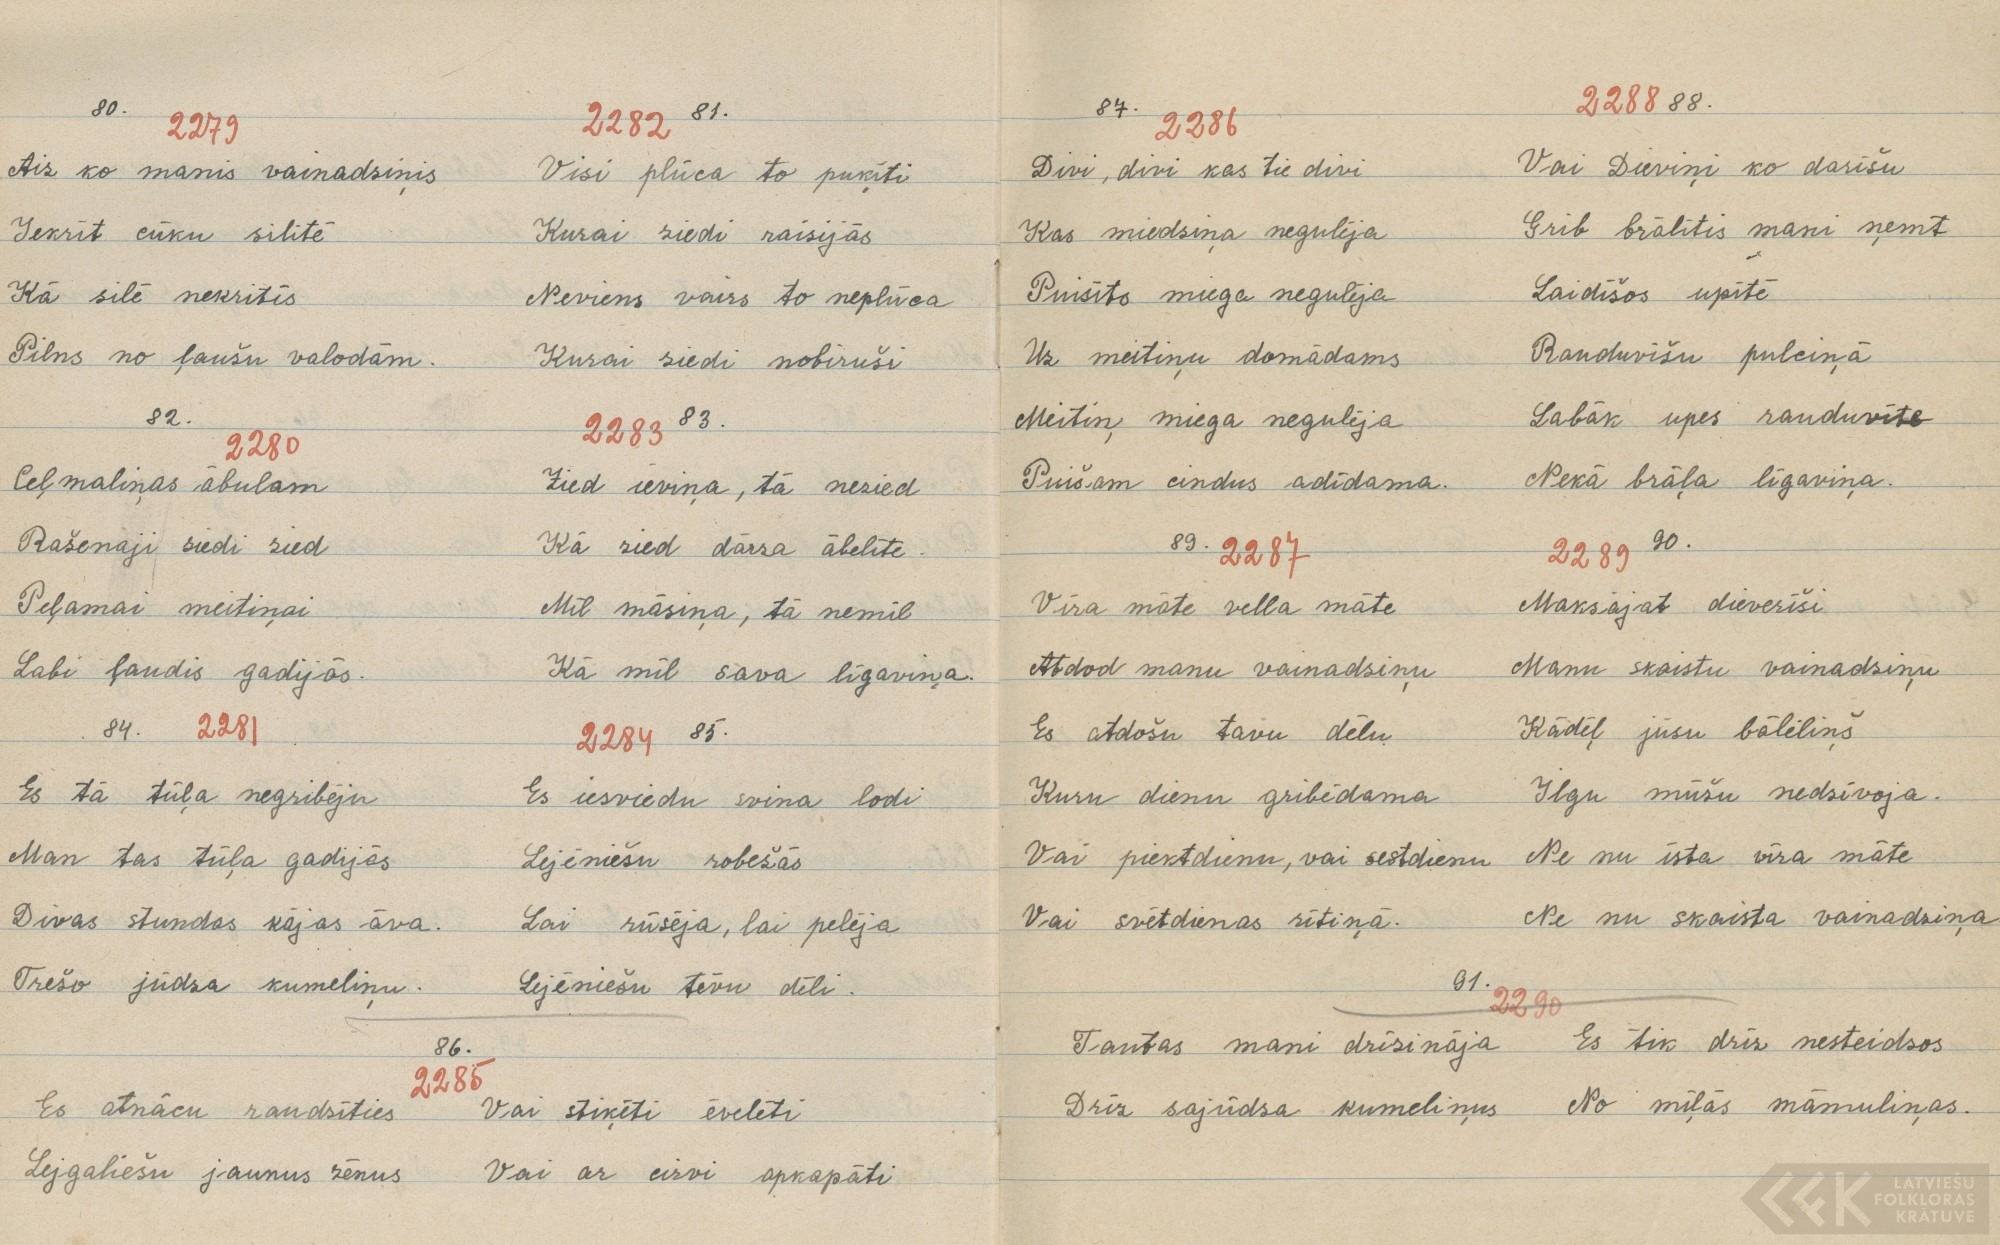 80.
2279
Aiz ko manis vainadziņis
Iekrīt cūku silītē
Kā silē nekritīs
Pilns no ļaušu valodām.
2282 81.
Visi plūca to puķīti
Kurai ziedi raisijās
Neviens vairs to neplūca
Kurai ziedi nobiruši
82.
2280
Ceļmaliņas ābulam
Rašenaji ziedi zied
Peļamai meitiņai
Labi ļaudis gadijās.
2283 83.
Zied ieviņa, tā nezied
Kā zied dārza ābelīte.
Mīl māsiņa, tā nemīl
Kā mīl sava līgaviņa.
84. 2281
Es tā tūļa negribēju
Man tas tūļa gadijās
Divas stundas kājas āva.
Trešo jūdza kumeliņu.
2284 85.
Es iesviedu svina lodi
Lejēniešu robežās
Lai rūsēja, lai pelēja
Lejēniešu tēvu dēli.
86.
2285
Es atnācu raudzīties
Lejgaliešu jaunus zēnus
Vai stiķēti ēvelēti
Vai ar cirvi apkapāti
87.
2286
Divi, divi kas tie divi
Kas miedziņa negulēja
Puisīts miega negulēja
Uz meitiņu domādams
Meitiņ miega negulēja
Puišam cimdus adīdama.
2288 88.
Vai Dieviņi ko darīšu
Grib brālītis mani ņemt
Laidīšos upītē
Rauduvīšu pulciņā
Labāk upes rauduvīte
Nekā brāļa līgaviņa.
89. 2287
Vīra māte vella māte
Atdod manu vainadziņu
Es atdošu tavu dēlu
Kuru dienu gribēdama
Vai piektdienu, vai sestdienu
Vai svētdienas rītiņā.
2289 90.
Maksājat dieverīši
Manu skaistu vainadziņu
Kādēļ jūsu bāleliņš
Ilgu mūžu nedzīvoja.
Ne nu īsta vīra māte
Ne nu skaista vainadziņa
91.
2290
Tautas mani drīzināja
Drīz sajūdza kumeliņus
Es tik drīz nesteidzos
No mīļās māmuliņas.
LATVIEŠU
FOLKLORAS
KRĀTUVE